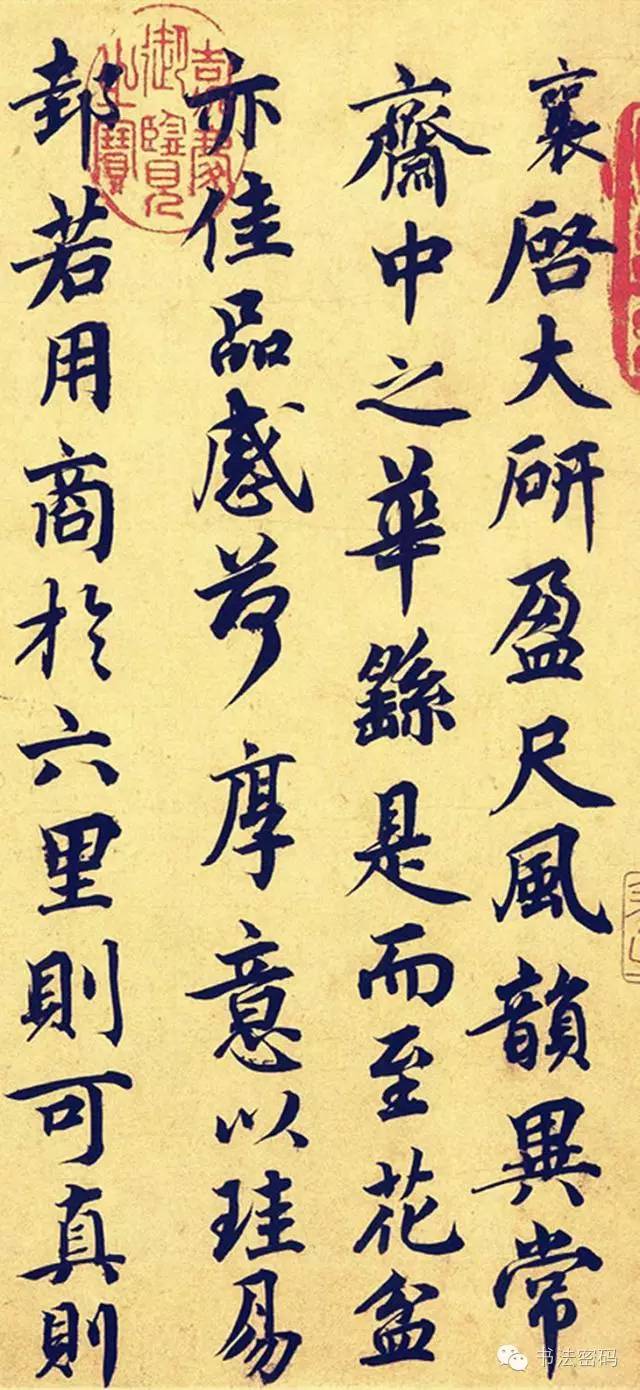 襄啓大研盈尺風韻異常
齋中之華繇是而至花盆
亦佳品感荷厚意以珪易
邽若用商於六里則可真則
嘉慶御覽之寶
书法密码